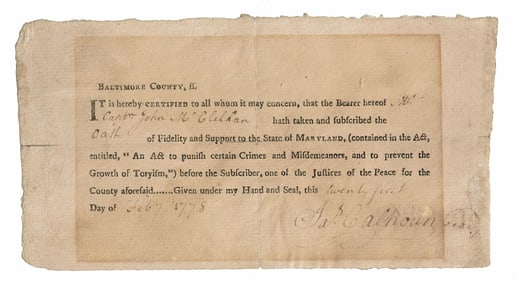 Baltimore County, ſſ.
IT is hereby CERTIFIED to all whom it may concern, that the Bearer hereof Mr
Captn John McClellan hath taken and subſcribed the
Oath of Fidelity and Support to the State of MARYLAND, (contained in the Act,
entitled, “ An Act to puniſh certain Crimes and Miſdemeanors, and to prevent the
Growth of Toryiſm,”) before the Subſcriber, one of the Juſtices of the Peace for the
County aforeſaid.......Given under my Hand and Seal, this twenty first
Day of Feby 1778
Jas Calhoun